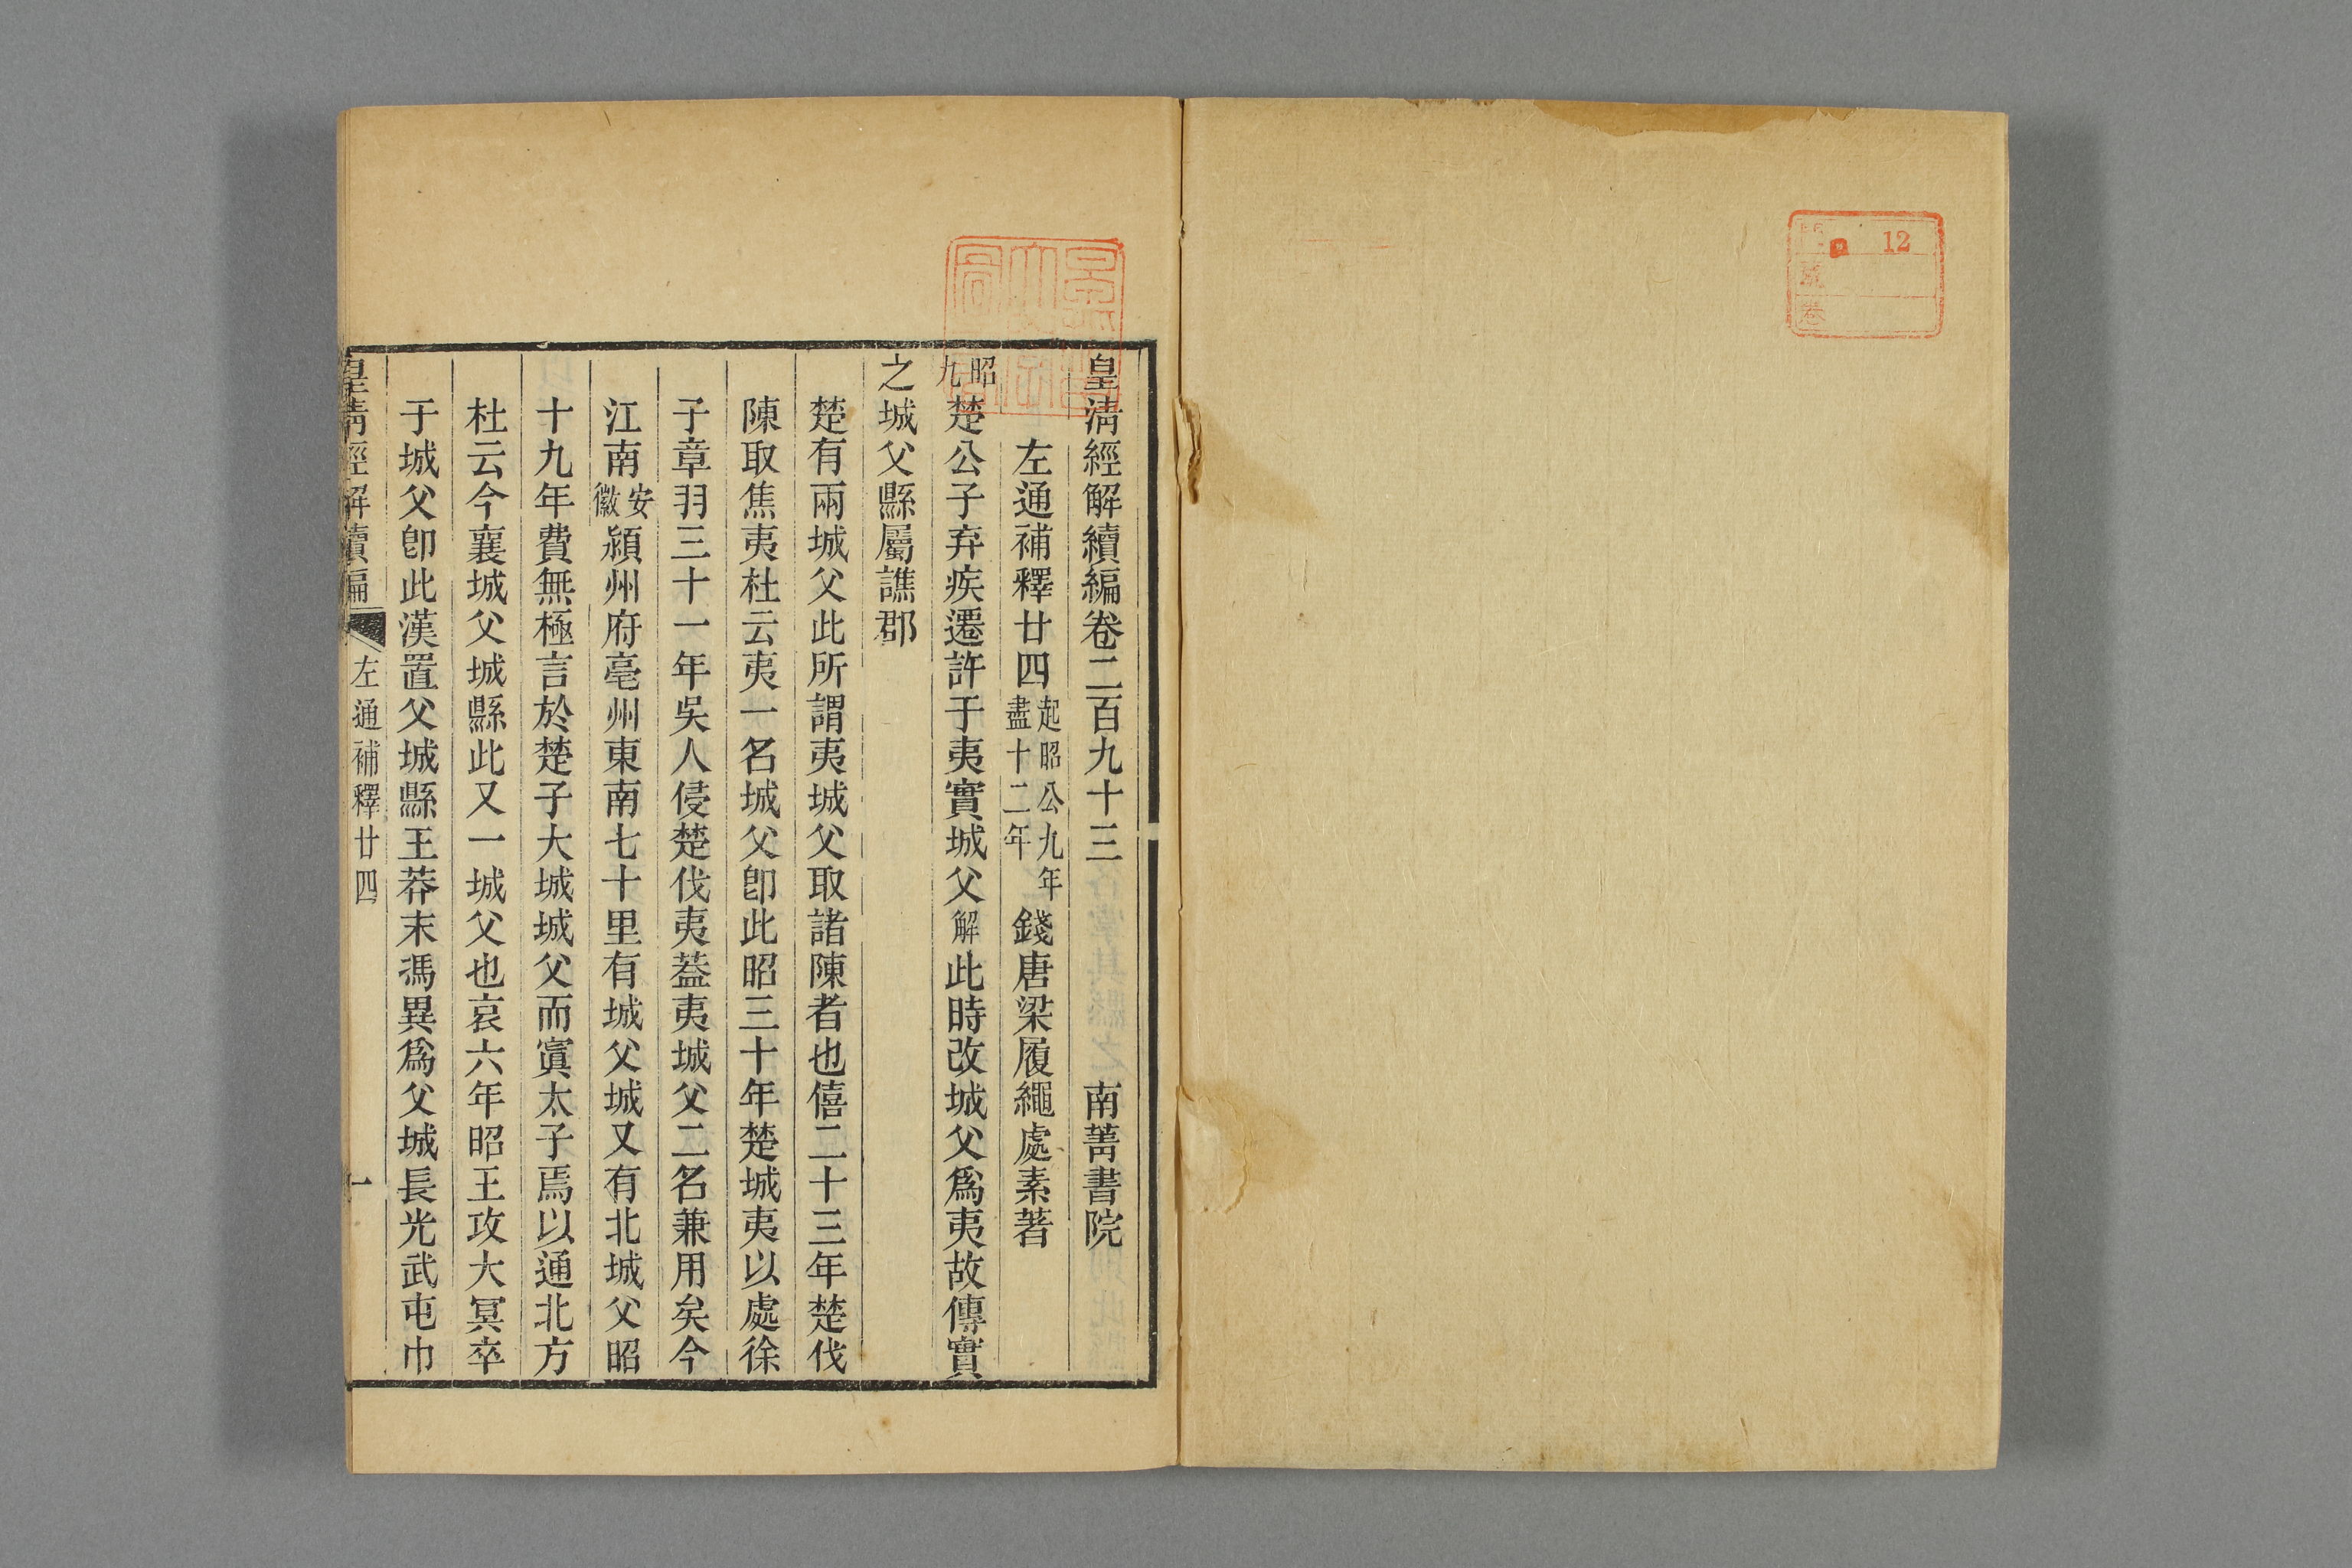 12
皇清經解續編卷二百九十三 南菁書院
左通補釋廿四起昭公九年盡十二年 錢唐梁履繩處素著
昭九楚公子弃疾遷許于夷實城父解此時改城父爲夷故傳實
之城父縣屬譙郡
楚有兩城父此所謂夷城父取諸陳者也僖二十三年楚伐
陳取焦夷杜云夷一名城父卽此昭三十年楚城夷以處徐
子章羽三十一年吳人侵楚伐夷葢夷城父二名兼用矣今
江南安徽潁州府亳州東南七十里有城父城又有北城父昭
十九年費無極言於楚子大城城父而寘太子焉以通北方
杜云今襄城父城縣此又一城父也哀六年昭王攻大冥卒
于城父卽此漢置父城縣王莽末馮異爲父城長光武屯巾
皇清經解續編 左通補釋廿四 一